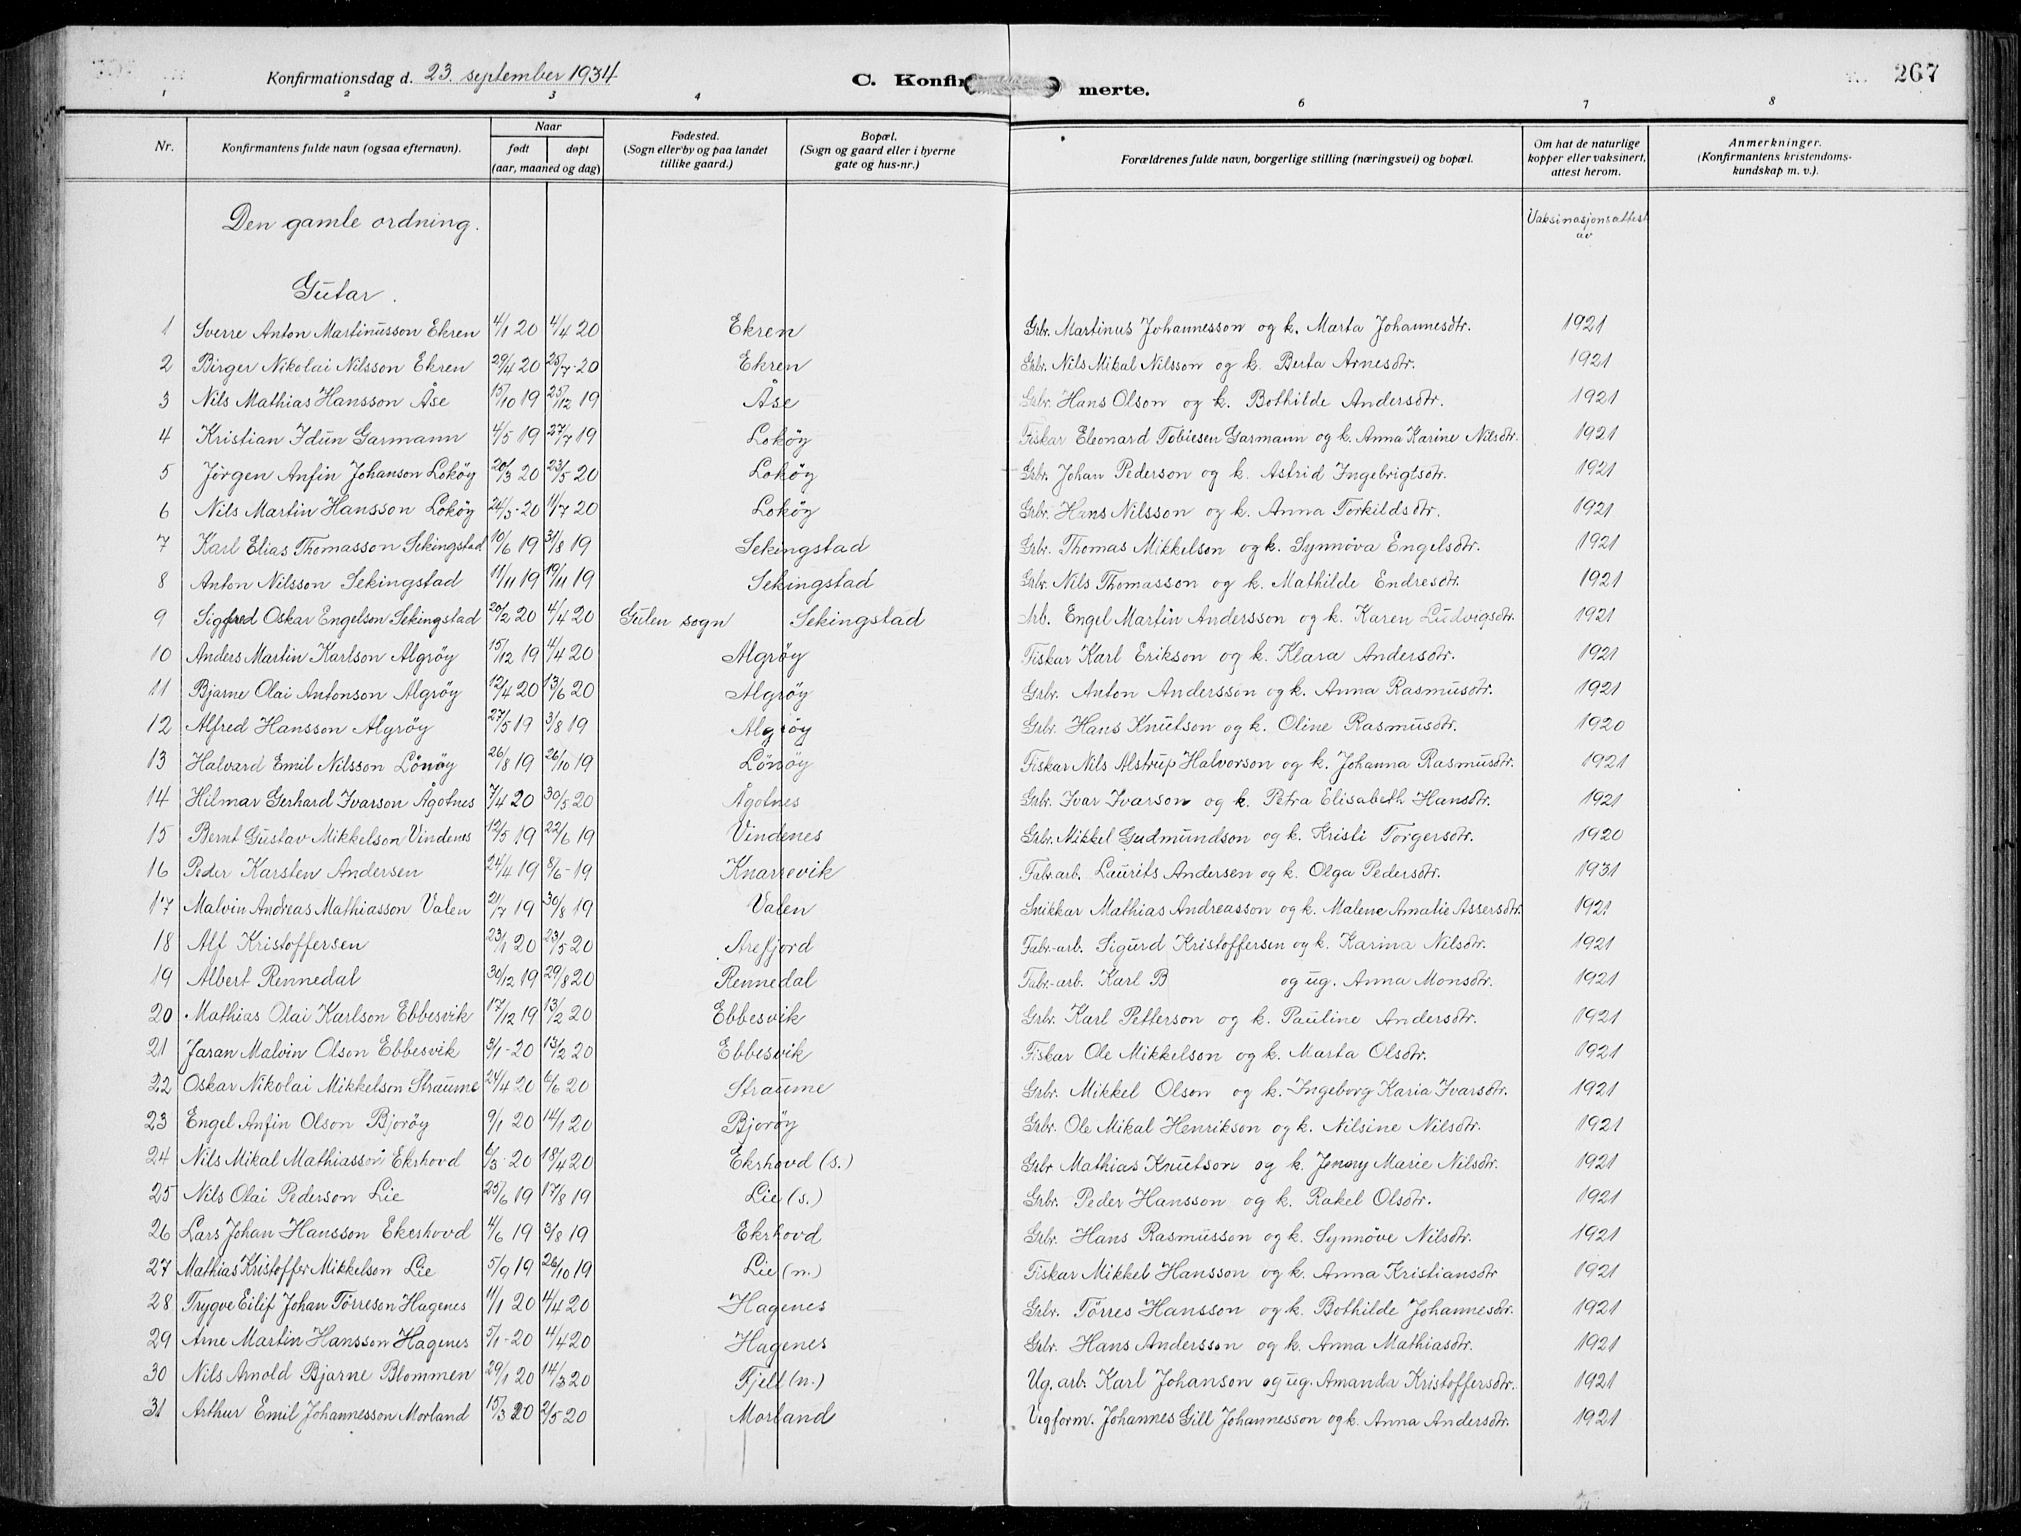 Konfirmationsdag d. 23. september 1934
C. Konfirmerte.
267
1 2 3 4 6 7 8
Nr. Konfirmantens fulde navn (ogsaa efternavn). Naar født døpt (aar, maaned og dag) Fødested. (Sogn eller by og paa landet tillike gaard.) Bopæl. (Sogn og gaard eller i byerne gate og hus-nr.) Forældrenes fulde navn, borgerlige stilling (næringsvei) og bopæl. Om hat de naturlige kopper eller vaksinert, attest herom. Anmerkninger. (Konfirmantens kristendoms-kundskap m. v.).
Den gamle ordning. Vaksinasjonsattest av
Gutar.
1 Sverre Anton Martinusson Ekren 4/1 20 4/4 20 Ekren Grbr. Martinus Johannesson og k. Marta Johannesdtr. 1921
2 Birger Nikolai Nilsson Ekren 29/4 20 25/7-20 Ekren Grbr. Nils Mikal Nilsson og k. Berta Arnesdtr. 1921
3 Nils Mathias Hansson Åse 15/10 19 25/12 19 Åse Grbr. Hans Olson og k. Bothilde Andersdtr. 1921
4 Kristian Idun Garmann 4/5 19 27/7 19 Lokøy Fiskar Eleonard Tobiesen Garmann og k. Anna Karine Nilsdtr. 1921
5 Jørgen Anfin Johanson Lokøy 20/3 20 23/5 20 Lokøy Grbr. Johan Pederson og k. Astrid Ingebrigtsdtr. 1921
6 Nils Martin Hansson Lokøy 24/3-20 11/7 20 Lokøy Grbr. Hans Nilsson og k. Anna Torkildsdtr. 1921
7 Karl Elias Thomasson Sekingstad 10/6 19 31/8 19 Sekingstad Grbr. Thomas Mikkelson og k. Synnøva Engelsdtr. 1921
8 Anton Nilsson Sekingstad 11/11 19 19/11 19 Sekingstad Grbr. Nils Thomasson og k. Mathilde Endresdtr. 1921
9 Sigfred Oskar Engelson Sekingstad 20/2 20 4/4 20 Gulen sogn Sekingstad Arb. Engel Martin Andersson og k. Karen Ludvigsdtr. 1921
10 Anders Martin Karlson Algrøy 15/12 19 4/4 20 Algrøy Fiskar Karl Erikson og k. Klara Andersdtr. 1921
11 Bjarne Olai Antonson Algrøy 12/4 20 13/6 20 Algrøy Grbr. Anton Andersson og k. Anna Rasmusdtr. 1921
12 Alfred Hansson Algrøy 27/5 19 3/8 19 Algrøy Grbr. Hans Knutson og k. Oline Rasmusdtr. 1920
13 Halvard Emil Nilsson Lønøy 26/8 19 26/10 19 Lönöy Fiskar Nils Alstrup Halvorson og k. Johanna Rasmusdtr. 1921
14 Hilmar Gerhard Ivarson Ågotnes 7/4 20 30/5 20 Ågotnes Grbr. Ivar Ivarson og k. Petra Elisabeth Hansdtr. 1921
15 Bernt Gustav Mikkelson Vindenes 12/5 19 22/6 19 Vindenes Grbr. Mikkel Gudmundson og k. Kristi Torgersdtr. 1920
16 Peder Karsten Andersen 24/4 19 8/6-19 Knarrevik Fabr.arb. Laurits Andersen og k. Olga Pedersdtr. 1931
17 Malvin Andreas Mathiasson Valen 21/7 19 30/8 19 Valen Snikkar Mathias Andreasson og k. Malene Amalie Assersdtr. 1921
18 Alf Kristoffersen 23/1 20 23/5 20 Arefjord Fabr.-arb. Sigurd Kristoffersen og k. Karina Nilsdtr. 1921
19 Albert Rennedal 30/12 19 29/8 20 Rennedal Fabr.-arb. Karl B og ug. Anna Monsdtr. 1921
20 Mathias Olai Karlson Ebbesvik 17/12 19 13/2 20 Ebbesvik Grbr. Karl Petterson og k. Pauline Andersdtr. 1921
21 Jaran Malvin Olson Ebbesvik 3/1-20 13/2 20 Ebbesvik Fiskar Ole Mikkelson og k. Marta Olsdtr. 1921
22 Oskar Nikolai Mikkelson Straume 24/4 20 6/6 20 Straume Grbr. Mikkel Olson og k. Ingeborg Karia Ivarsdtr. 1921
23 Engel Anfin Olson Bjorøy 9/1 20 14/1 20 Bjorøy Grbr. Ole Mikal Henrikson og k. Nilsine Nilsdtr. 1921
24 Nils Mikal Mathiasson Ekrhovd 6/3-20 18/4 20 Ekrhovd (s.) Grbr Mathias Knutson og k. Jenny Marie Nilsdtr. 1921
25 Nils Olai Pederson Lie 25/6 19 17/8 19 Lie (s.) Grbr. Peder Hansson og k. Rakel Olsdtr. 1921
26 Lars Johan Hansson Ekerhovd 4/6 19 3/8 19 Ekrhovd Grbr. Hans Rasmusson og k. Synnøve Nilsdtr. 1921
27 Mathias Kristoffer Mikkelson Lie 5/9 19 26/10 19 Lie (n.) Fiskar Mikkel Hansson og k. Anna Kristiansdtr 1921
28 Trygve Eilif Johan Tørreson Hagenes 11/1 20 4/4 20 Hagenes Grbr. Tørres Hansson og k. Bothilde Johannesdtr. 1921
29 Arne Martin Hansson Hagenes 5/1-20 4/4 20 Hagenes Grbr. Hans Andersson og k. Anna Mathiasdtr. 1921
30 Nils Arnold Bjarne Blommen 29/1 20 14/3 20 Fjell (n.) Ug. arb. Karl Johanson og ug. Amanda Kristoffersdtr. 1921
31 Arthur Emil Johannesson Morland 15/3 20 2/5 20 Morland Vegform. Johannes Gill Johannesson og k. Anna Andersdtr. 1921